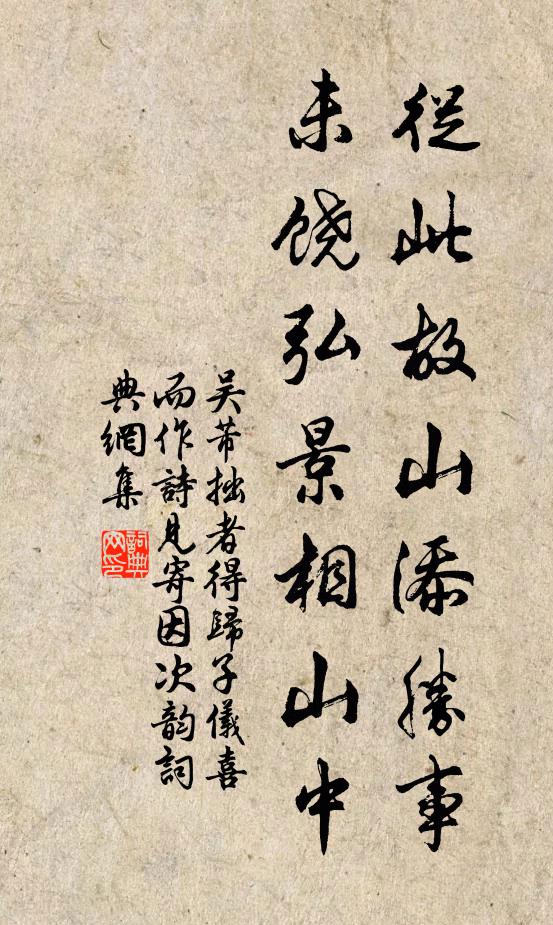 從此故山添勝事
未饒弘景相山中
吴芾拙者得歸子儀喜
而作詩見寄因次韵詞
典網集
詞典
网印